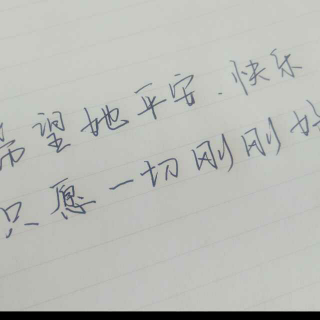 希望她平安.快乐
只愿一切刚刚好